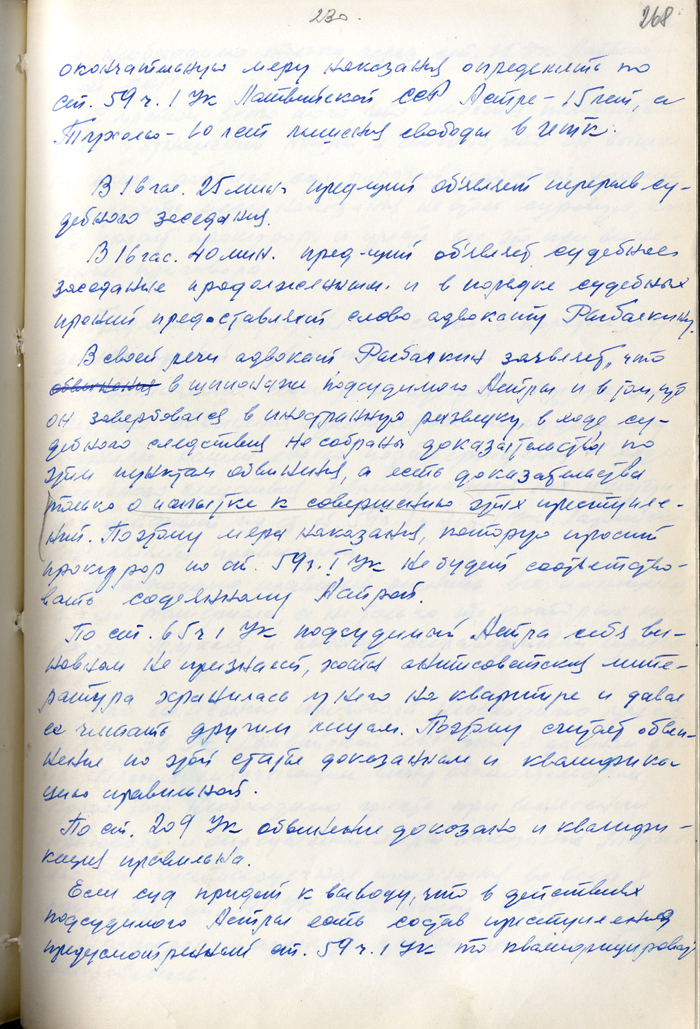 230.
268
окончательную меру наказания определить по
ст. 59 ч. 1 УК Латвийской ССР Астре – 15 лет, а
– 10 лет лишения свободы в ИТК.
В 16 час. 25 мин. пред-щий объявляет перерыв су-
дебного заседания.
В 16 час. 40 мин. пред-щий объявляет судебное
заседание продолженным и в порядке судебных
прений предоставляет слово адвокату
В своей речи адвокат заявляет, что
обвинения в шпионаже подсудимого Астры и в том, что
он завербовался в иностранную разведку, в ходе су-
дебного следствия не собраны доказательства по
этим пунктам обвинения, а есть доказательства
только о попытке к совершению этих преступле-
ний. Поэтому мера наказания, которую просит
прокурор по ст. 59 ч. 1 УК не будет соответство-
вать содеянному Астрой.
По ст. 65 ч 1 УК подсудимый Астра себя ви-
новным не признает, хотя антисоветская лите-
ратура хранилась у него на квартире и давал
ее читать другим лицам. Поэтому считает обви-
нение по этой статье доказанным и квалифика-
цию правильной.
По ст. 209 УК обвинение доказано и квалифи-
кация правильна.
Если суд придет к выводу, что в действиях
подсудимого Астры есть состав преступления
предусмотренный ст. 59 ч. 1 УК то квалифицировать